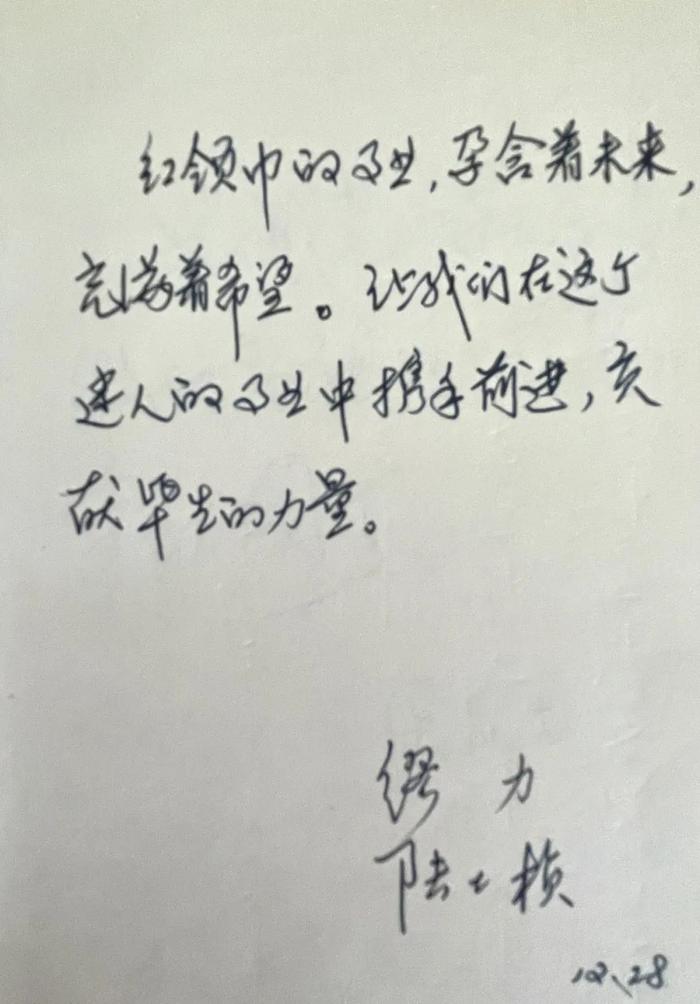 红领巾的事业，孕含着未来，
充满着希望。让我们在这个
迷人的事业中携手前进，贡
献毕生的力量。
缪 力
陆士桢
12、28